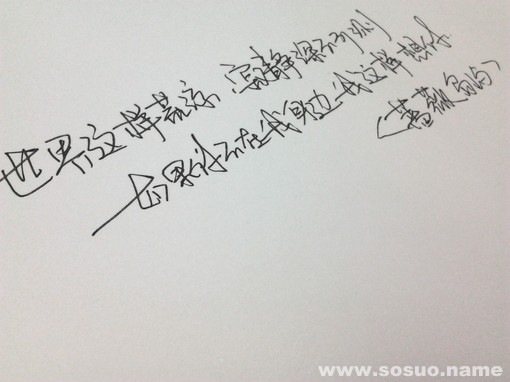 世界这样荒凉 寂静深不可测
如果你不在我身边 我这样想你
(蔷薇岛屿)
www.sosuo.name